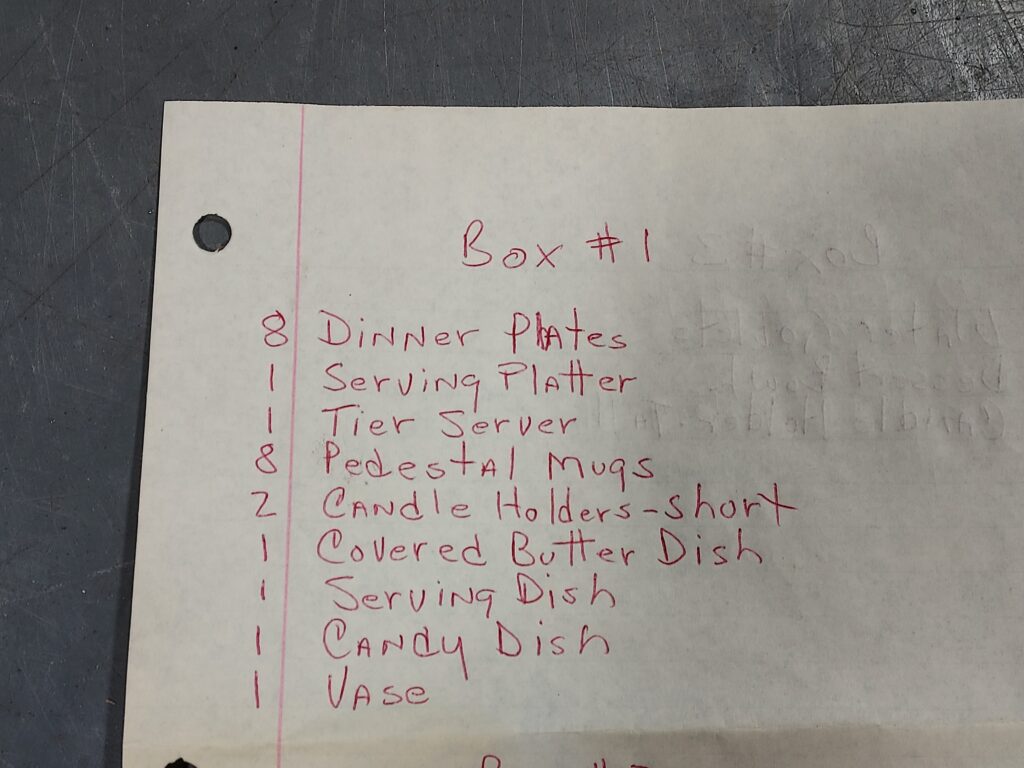 Box #1
8 Dinner Plates
1 Serving Platter
1 Tier Server
8 Pedestal Mugs
2 Candle Holders-short
1 Covered Butter Dish
1 Serving Dish
1 Candy Dish
1 Vase